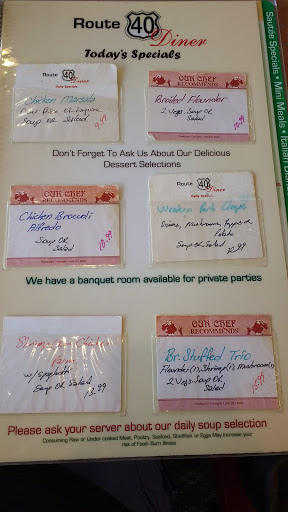 Route 40 Diner
Today's Specials
Route 40 Diner
Daily Specials
Chicken Marsala
over Rice or Linguine
Soup OR Salad
9.99
OUR CHEF
RECOMMENDS
Broiled Flounder
2 Vegs. Soup OR
Salad
10.99
Don't Forget To Ask Us About Our Delicious
Dessert Selections
OUR CHEF
RECOMMENDS
Chicken Broccoli
Alfredo
Soup OR
Salad
10.99
Route 40 Diner
Daily Specials
Western Pork Chops
Onions, Mushrooms, Peppers
Potato
Soup OR Salad
12.99
We have a banquet room available for private parties
Parm
w/Spaghetti
Soup OR Salad
13.99
OUR CHEF
RECOMMENDS
Br. Stuffed Trio
Flounder(1), Shrimp(1), Mushroom(1)
2 Vegs. Soup OR
Salad
15.99
Please ask your server about our daily soup selection
Consuming Raw or Under cooked Meat, Poultry, Seafood, Shellfish or Eggs May Increase your
risk of Food- Born Illness
Sautée Specials • Mini Meals • Italian Dishes